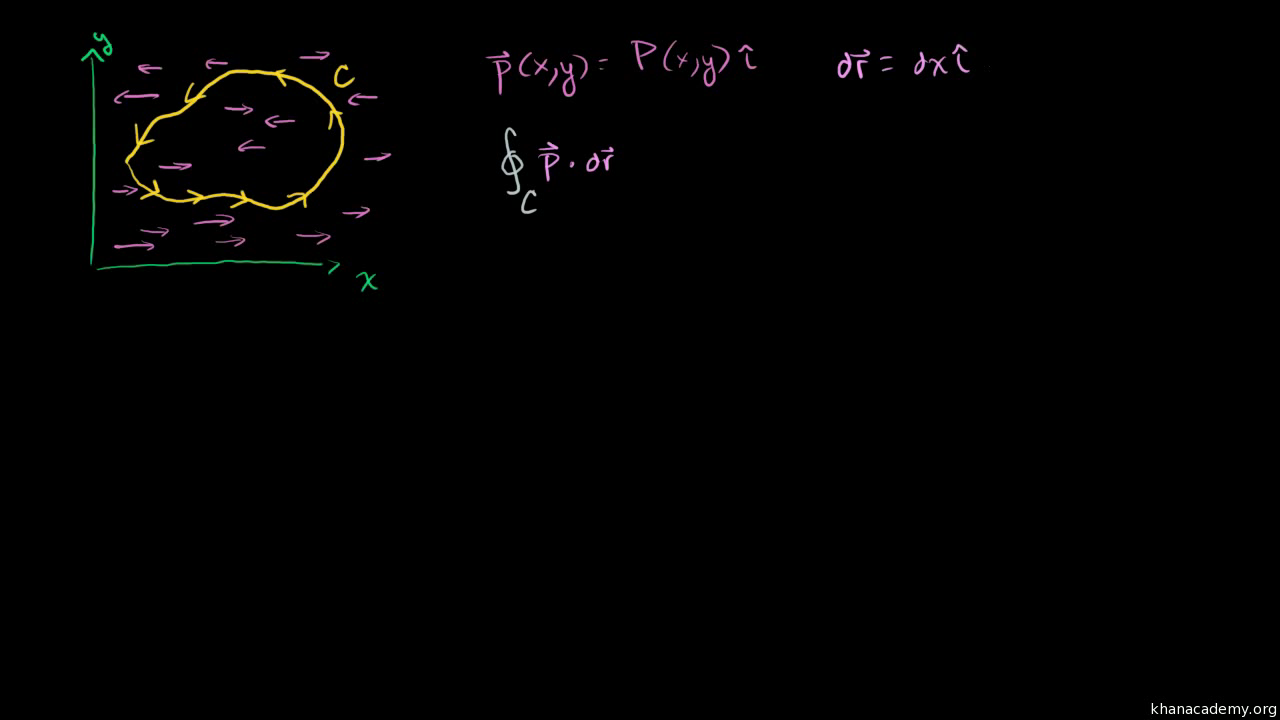 y
C
x
p⃗(x,y) = P(x,y) î
dr⃗ = dx î
∮
C
p⃗ · dr⃗
khanacademy.org